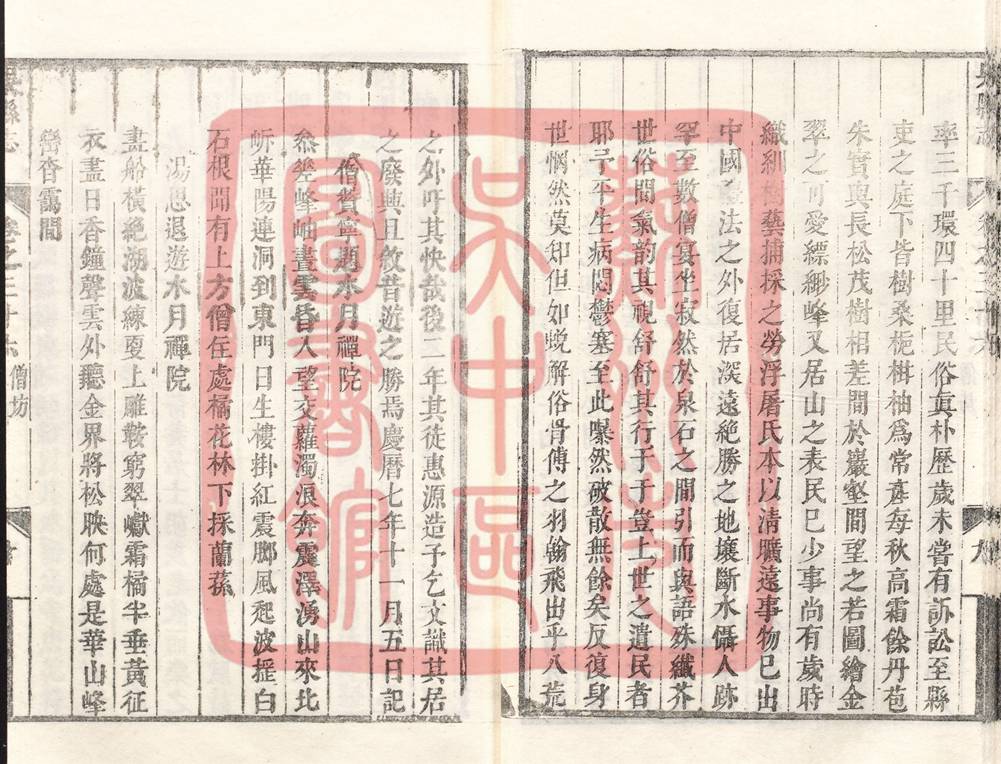 率三千環四十里民俗真朴歷歲未嘗有訴訟至縣
吏之庭下皆樹桑梔柑柚爲常真每秋高霜餘丹苞
朱實與長松茂樹相差間於巖壑間望之若圖繪金
翠之可愛縹緲峰又居山之表民已少事尚有歲時
織紃樹藝捕採之勞浮屠氏本以清曠遠事物已出
中國法之外復居深遠絶勝之地壤斷水懾人跡
罕至數僧宴坐寂然於泉石之間引而與語殊纖芥
世俗間氣韵其視舒舒其行于于豈上世之遺民者
耶予平生病悶鬱塞至此曝然破散無餘矣反復身
世惘然莫知但如蛻解俗骨傅之羽翰飛出乎八荒
之外吁其快哉後二年其徒惠源造予乞文識其居
之廢興且敘昔遊之勝焉慶曆七年十一月五日記
僧贊寧題水月禪院
叅差峰岫晝雲昏入望交蘿濁浪奔震澤湧山來北
岍華陽連洞到東門日生樓掛紅震腳風起波搖白
石根聞有上方僧住處橘花林下採蘭蓀
湯思退遊水月禪院
畫船橫絶湖波練夏上雕鞍窮翠巘霜橘半垂黃征
衣盡日香鐘聲雲外聽金界將松映何處是華山峰
巒杳靄間
卷之三十六 僧坊
蘇州市吳中區圖書館